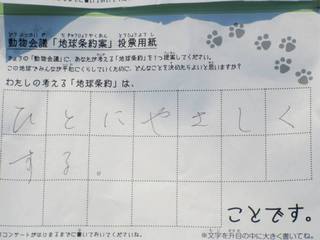 動物会議「地球条約案」投票用紙
きょうの「動物会議」に、あなたが考える「地球条約」を1つ提案してください。
この地球でみんなが平和にくらしていくために、どんなことを決めたらよいと思いますか?
わたしの考える「地球条約」は、
ひとにやさしく
する。
ことです。
コンテストがはじまるまでに書いておいてくださいね。
※文字を升目の中に大きく書いてね。